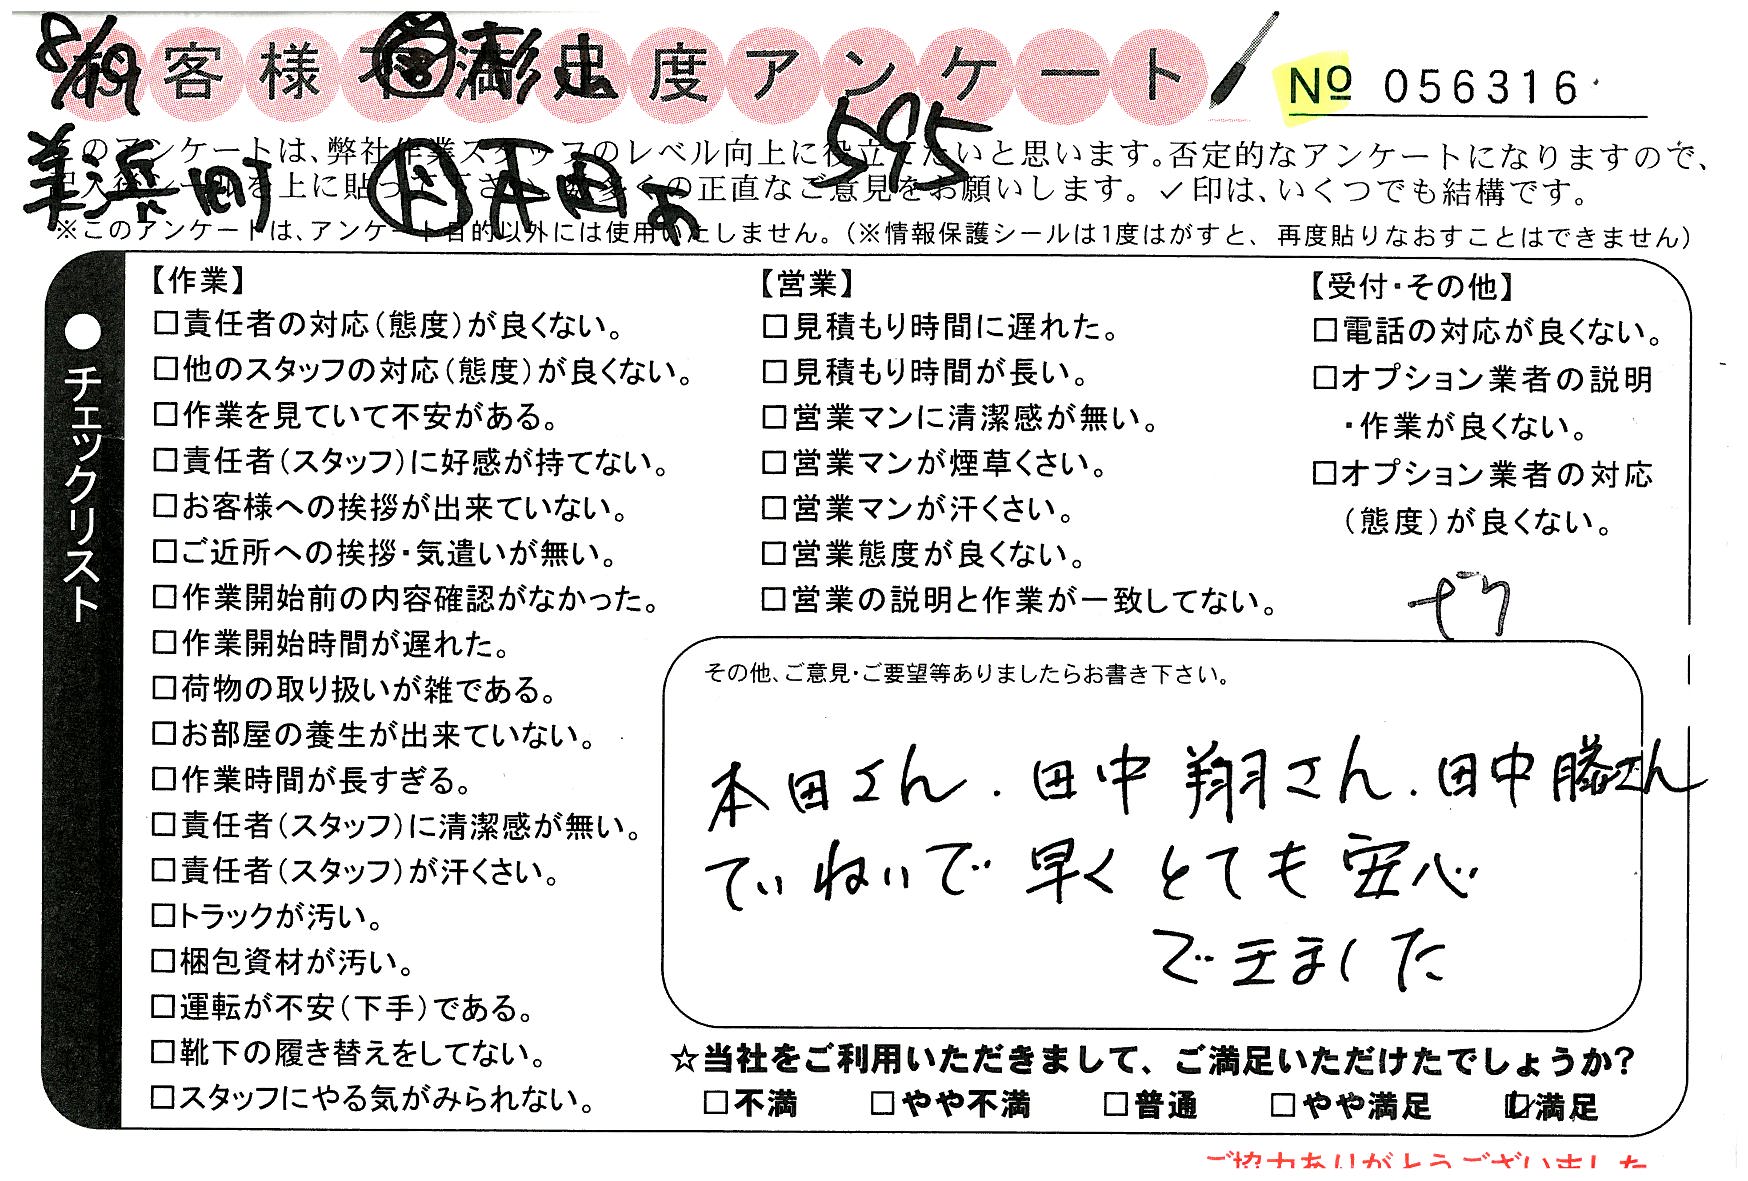 8/29
客様不満足度アンケート
№ 056316
595
このアンケートは、弊社作業スタッフのレベル向上に役立てたいと思います。否定的なアンケートになりますので、
美浜町 本田
を上に貼って下さい。数多くの正直なご意見をお願いします。✓印は、いくつでも結構です。
※このアンケートは、アンケート目的以外には使用いたしません。(※情報保護シールは1度はがすと、再度貼りなおすことはできません)
●チェックリスト
【作業】
□責任者の対応(態度)が良くない。
□他のスタッフの対応(態度)が良くない。
□作業を見ていて不安がある。
□責任者(スタッフ)に好感が持てない。
□お客様への挨拶が出来ていない。
□ご近所への挨拶・気遣いが無い。
□作業開始前の内容確認がなかった。
□作業開始時間が遅れた。
□荷物の取り扱いが雑である。
□お部屋の養生が出来ていない。
□作業時間が長すぎる。
□責任者(スタッフ)に清潔感が無い。
□責任者(スタッフ)が汗くさい。
□トラックが汚い。
□梱包資材が汚い。
□運転が不安(下手)である。
□靴下の履き替えをしてない。
□スタッフにやる気がみられない。
【営業】
□見積もり時間に遅れた。
□見積もり時間が長い。
□営業マンに清潔感が無い。
□営業マンが煙草くさい。
□営業マンが汗くさい。
□営業態度が良くない。
□営業の説明と作業が一致してない。
【受付・その他】
□電話の対応が良くない。
□オプション業者の説明
・作業が良くない。
□オプション業者の対応
(態度)が良くない。
その他、ご意見・ご要望等ありましたらお書き下さい。
本田さん.田中翔さん.田中勝さん
ていねいで早くとても安心
できました
☆当社をご利用いただきまして、ご満足いただけたでしょうか?
□不満 □やや不満 □普通 □やや満足 ☑満足
ご協力ありがとうございました